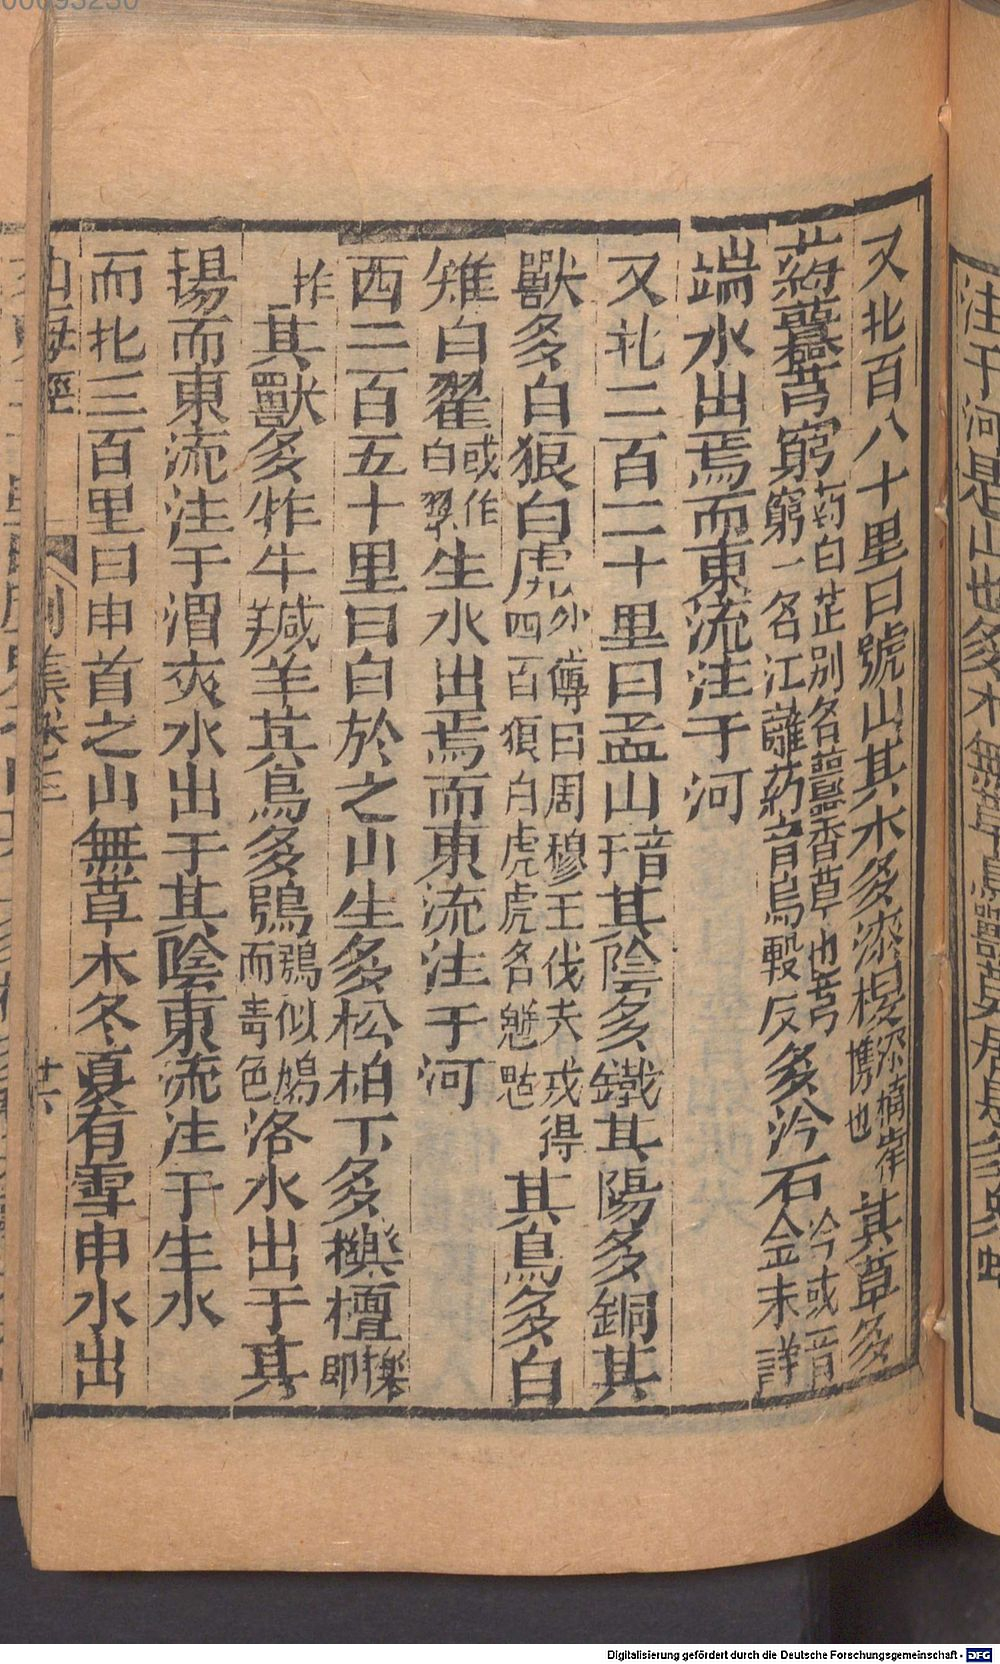 又北百八十里曰號山其木多漆椶漆椶㭒樗也其草多
葯虈芎藭葯白芷別名虈香草也芎藭一名江蘺葯音烏較反多汵石汵或音金未詳
端水出焉而東流注于河
又北二百二十里曰孟山音于其陰多鐵其陽多銅其
獸多白狼白虎外傳曰周穆王伐犬戎得四白狼白虎虎名魋魖其鳥多白
雉白翟或作白翠生水出焉而東流注于河
西二百五十里曰白於之山生多松柏下多櫟檀櫟即
柞其獸多㸲牛羬羊其鳥多鴞鴞似鳩而青色洛水出于其
揚而東流注于渭夾水出于其陰東流注于生水
而北三百里曰申首之山無草木冬夏有雪申水出
山海經 列集卷三 廿六
注于河是山也多木無草鳥獸莫居是多眾蛇
00093250
Digitalisierung gefördert durch die Deutsche Forschungsgemeinschaft - DFG